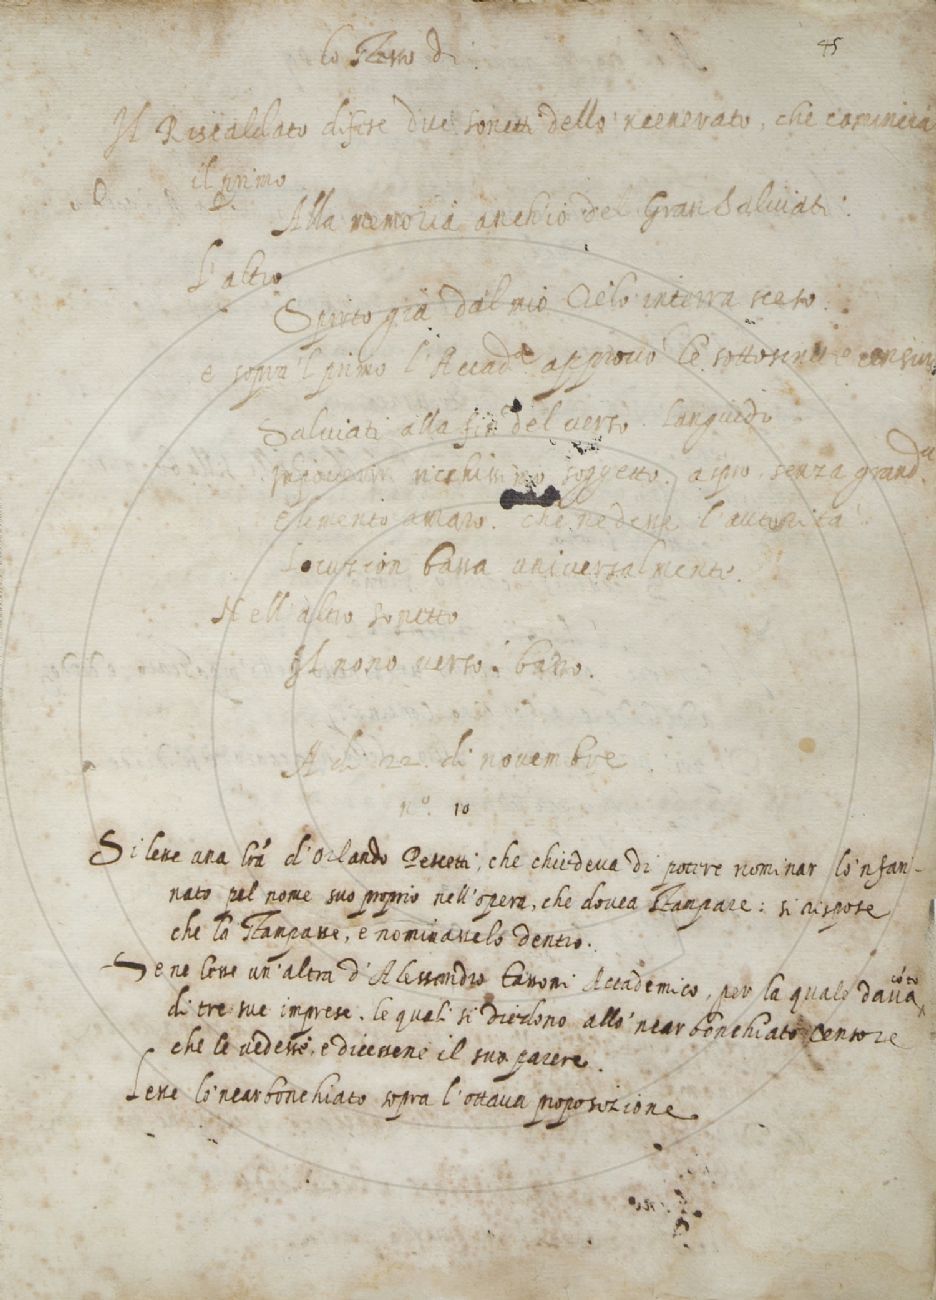 45
lo stesso di.
Il Riscaldato difese due sonetti dello 'ncenerato, che comincia
il primo
Alla memoria anchio del Gran Salviati.
L'altro
Spirto già dal mio Cielo in terra sceso.
e sopra 'l primo l'Accad.a approvò le sottoscritte censure
Salviati alla fin del verso. languido
soggetto. aspro, senza grand.a
amaro. che ne desse l'autorità
Locuzion bassa universalmente.
Nell'altro sonetto
Il nono verso. basso.
A di 22. di novembre
n.o 10
Si lesse una lrã d'Orlando Pescetti, che chiedeva di potere nominar lo 'nfari-
nato pel nome suo proprio nell'opera, che dovea stampare: si rispose
che la stampasse, e nominasselo dentro.
Se ne lesse un'altra d'Alessandro Tassoni Accademico, per la quale dava cõto
di tre sue imprese. le quali si diedono allo 'ncarbonchiato Censore
che le vedesse, e dicessene il suo parere.
Lesse lo 'ncarbonchiato sopra l'ottava proposizione